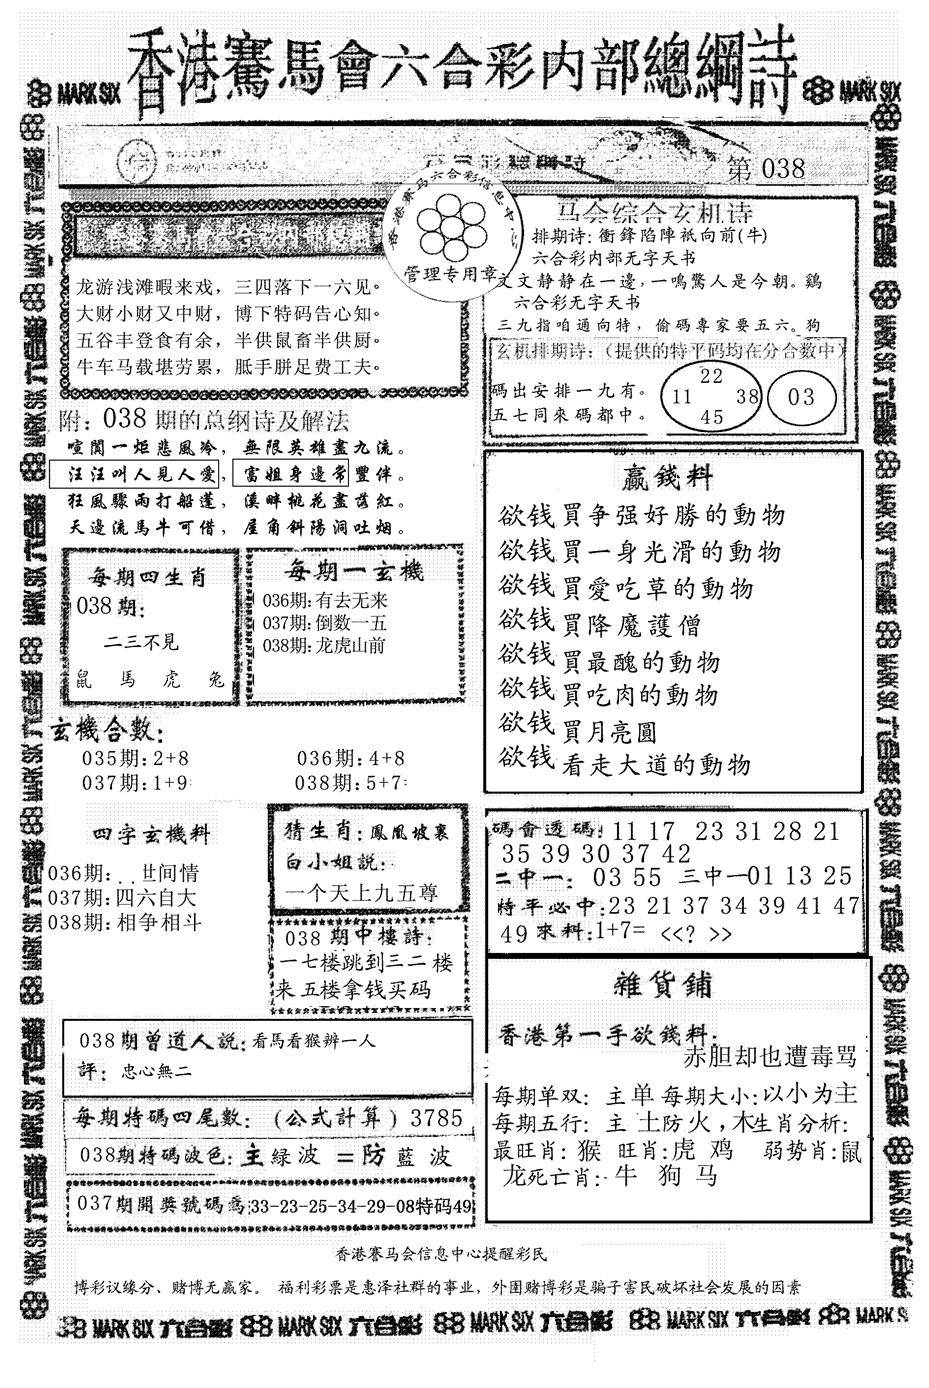 香港賽馬會六合彩内部總綱詩
MARK SIX
MARK SIX
第 038
香港赛马六合彩信息中心
管理专用章
龙游浅滩暇来戏，三四落下一六见。
大财小财又中财，博下特码告心知。
五谷丰登食有余，半供鼠畜半供厨。
牛车马载堪劳累，胝手胼足费工夫。
马会综合玄机诗
排期诗: 衝鋒陷陣祇向前(牛)
六合彩内部无字天书
文文静静在一邊，一鳴驚人是今朝。鷄
六合彩无字天书
三九指咱通向特，偷碼專家要五六。狗
玄机排期诗:（提供的特平码均在分合数中）
碼出安排一九有。
五七同來碼都中。
22
11 38
45
03
附: 038 期的总纲诗及解法
喧閙一炬悲風冷，無限英雄盡九流。
汪汪叫人見人愛，富姐身邊常豐伴。
狂風驟雨打船蓬，溪畔桃花盡落紅。
天邊流馬牛可借，屋角斜陽洞吐烟。
每期四生肖
038 期:
二三不見
鼠 馬 虎 兔
每期一玄機
036期: 有去无来
037期: 倒数一五
038期: 龙虎山前
赢錢料
欲钱買争强好勝的動物
欲钱買一身光滑的動物
欲钱買愛吃草的動物
欲钱買降魔護僧
欲钱買最醜的動物
欲钱買吃肉的動物
欲钱買月亮圓
欲钱看走大道的動物
玄機合數:
035期: 2+8 036期: 4+8
037期: 1+9 038期: 5+7
四字玄機料
036期: 世间情
037期: 四六自大
038期: 相争相斗
猜生肖: 鳳凰坡裏
白小姐説:
一个天上九五尊
038 期中樓詩:
一七楼跳到三二楼
来五楼拿钱买码
碼會透碼: 11 17 23 31 28 21
35 39 30 37 42
二中一: 03 55 三中一01 13 25
特平必中:23 21 37 34 39 41 47
49 來料:1+7= <<? >>
雜貨鋪
香港第一手欲錢料:
赤胆却也遭毒骂
每期单双: 主单 每期大小:以小为主
每期五行: 主 土防火，木生肖分析:
最旺肖: 猴 旺肖:虎 鸡 弱势肖:鼠
龙死亡肖: 牛 狗 马
038期曾道人説: 看馬看猴辨一人
評: 忠心無二
每期特碼四尾數: (公式計算) 3785
038期特碼波色: 主緑波 =防藍波
037期開獎號碼爲:33-23-25-34-29-08特码49
香港赛马会信息中心提醒彩民
博彩议缘分、赌博无赢家。 福利彩票是惠泽社群的事业，外围赌博彩是骗子害民破坏社会发展的因素
MARK SIX 六合彩 MARK SIX 六合彩 MARK SIX 六合彩 MARK SIX 六合彩 MARK SIX